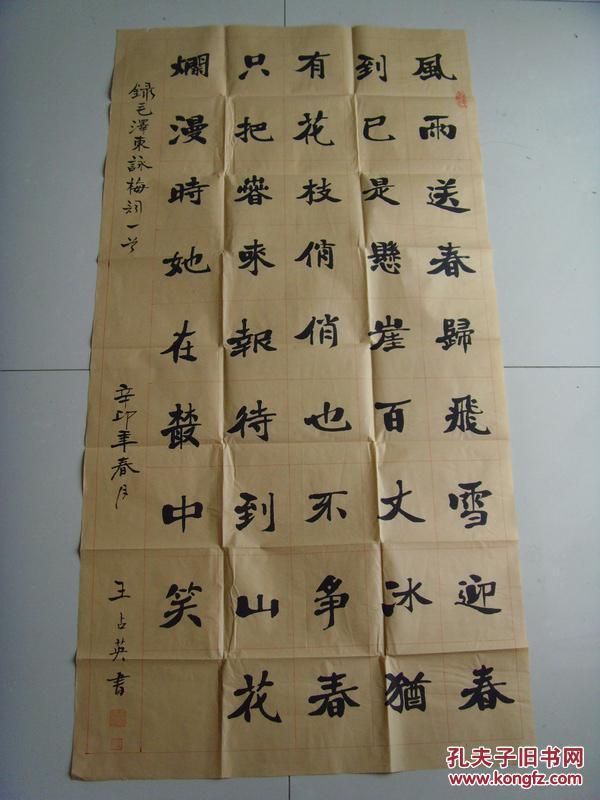 風雨送春歸飛雪迎春
到已是懸崖百丈冰猶
有花枝俏俏也不爭春
只把春來報待到山花
爛漫時她在叢中笑
録毛澤東詠梅词一首
辛卯年春月
王占英書
孔夫子旧书网
www.kongfz.com